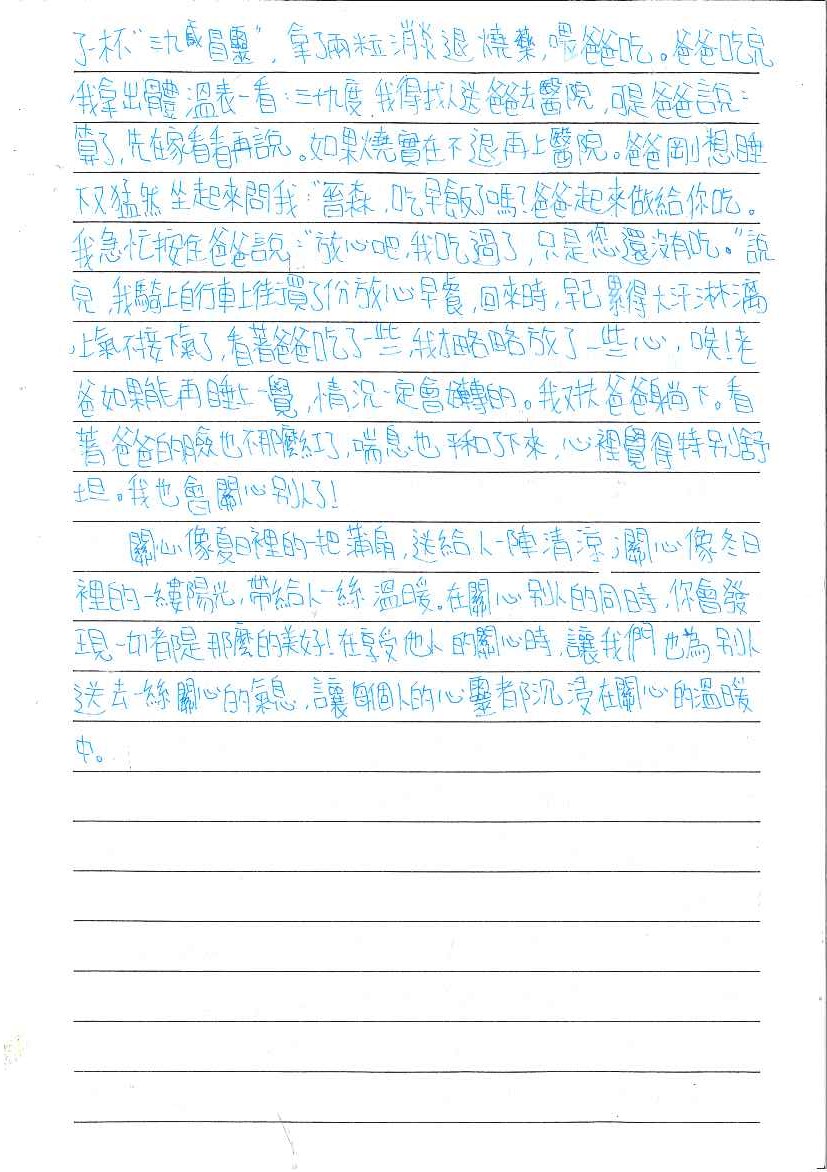 了一杯“三九感冒靈”，拿了兩粒消炎退燒藥，喂爸爸吃。爸爸吃完
我拿出體溫表一看：三十九度，我得找人送爸爸去醫院，可是爸爸說：
算了，先在家看看再說。如果燒實在不退再上醫院。爸爸剛想睡
下又猛然坐起來問我：“晉森，吃早飯了嗎？爸爸起來做給你吃。
我急忙按住爸爸說：“放心吧，我吃過了，只是您還沒有吃。”說
完，我騎上自行車上街買了份放心早餐，回來時，早已累得大汗淋漓
上氣不接下氣了，看著爸爸吃了一些，我才略略放了一些心，唉！老
爸如果能再睡上一覺，情況一定會好轉的。我又扶爸爸躺下。看
著爸爸的臉也不那麼紅了，喘息也平和了下來，心裡覺得特別舒
坦。我也會關心別人了！
關心像夏日裡的一把蒲扇，送給人一陣清涼；關心像冬日
裡的一縷陽光，帶給人一絲溫暖。在關心別人的同時，你會發
現一切都是那麼的美好！在享受他人的關心時，讓我們也為別人
送去一絲關心的氣息，讓每個人的心靈都沉浸在關心的溫暖
中。